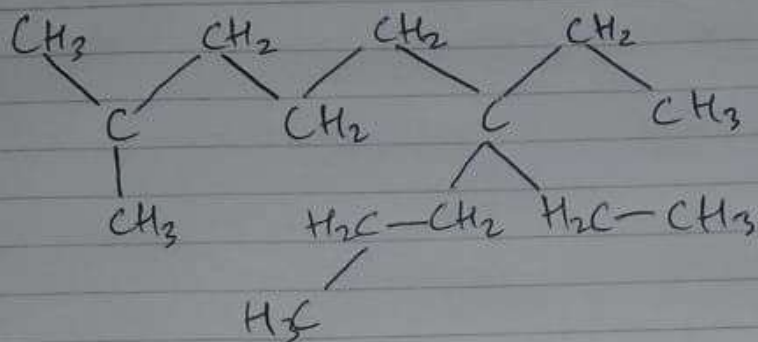 CH3 CH2 CH2 CH2
C CH2 C CH3
CH3 H2C—CH2 H2C—CH3
H3C